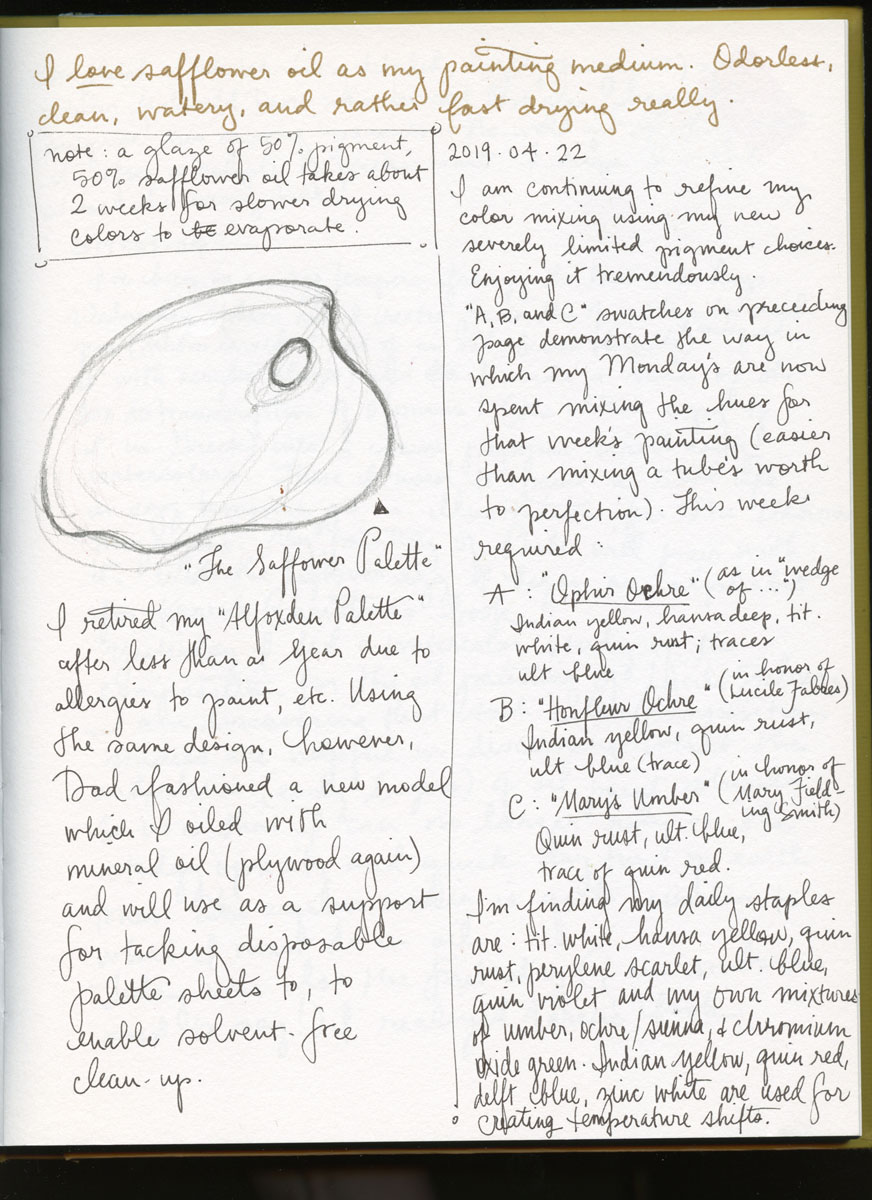 I love safflower oil as my painting medium. Odorless,
clean, watery, and rather fast drying really.
note: a glaze of 50% pigment,
50% safflower oil takes about
2 weeks for slower drying
colors to be evaporate.
"The Safflower Palette"
I retired my "Alfoxden Palette"
after less than a year due to
allergies to paint, etc. Using
the same design, however,
Dad fashioned a new model
which I oiled with
mineral oil (plywood again)
and will use as a support
for tacking disposable
palette sheets to, to
enable solvent-free
clean-up.
2019.04.22
I am continuing to refine my
color mixing using my new
severely limited pigment choices.
Enjoying it tremendously.
"A, B, and C" swatches on preceeding
page demonstrate the way in
which my Monday's are now
spent mixing the hues for
that week's painting (easier
than mixing a tube's worth
to perfection). This week
required:
A: "Ophir Ochre" (as in "wedge
of ...")
Indian yellow, hansa deep, tit.
white, quin rust; traces
ult blue
B: "Honfleur Ochre" (in honor of
Lucile)
Indian yellow, quin rust,
ult blue (trace)
C: "Mary's Umber" (in honor of
Mary Field-
ing Smith)
Quin rust, ult. blue,
trace of quin red.
I'm finding my daily staples
are: tit. white, hansa yellow, quin
rust, perylene scarlet, ult. blue,
quin violet and my own mixtures
of umber, ochre/sienna, & chromium
oxide green. Indian yellow, quin red,
delft blue, zinc white are used for
creating temperature shifts.